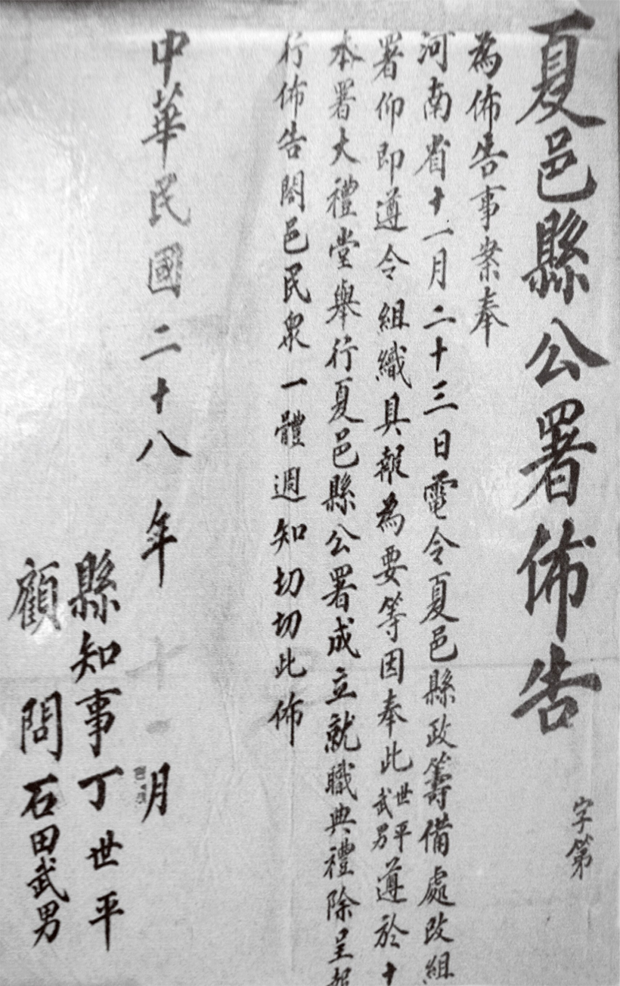 夏邑縣公署佈告
字第
為佈告事案奉
河南省十一月二十三日電令夏邑縣政籌備處改組
署仰即遵令組織具報為要等因奉此世平武男遵於十
本署大禮堂舉行夏邑縣公署成立就職典禮除呈報
行佈告閤邑民衆一體週知切切此佈
中華民國二十八年十一月
縣知事丁世平
顧問石田武男